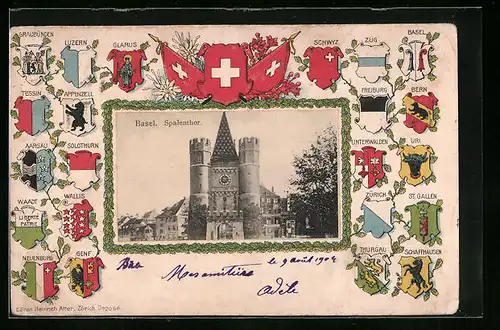 GRAUBÜNDEN
LUZERN
GLARUS
SCHWYZ
ZUG
BASEL
TESSIN
APPENZELL
FREIBURG
BERN
Basel. Spalenthor.
AARGAU
SOLOTHURN
UNTERWALDEN
URI
WAADT
LIBERTÉ
PATRIE
WALLIS
ZÜRICH
ST. GALLEN
NEUENBURG
GENF
THURGAU
SCHAFFHAUSEN
le 9 août 1904
Adèle
Edition Heinrich
Zürich Deposé